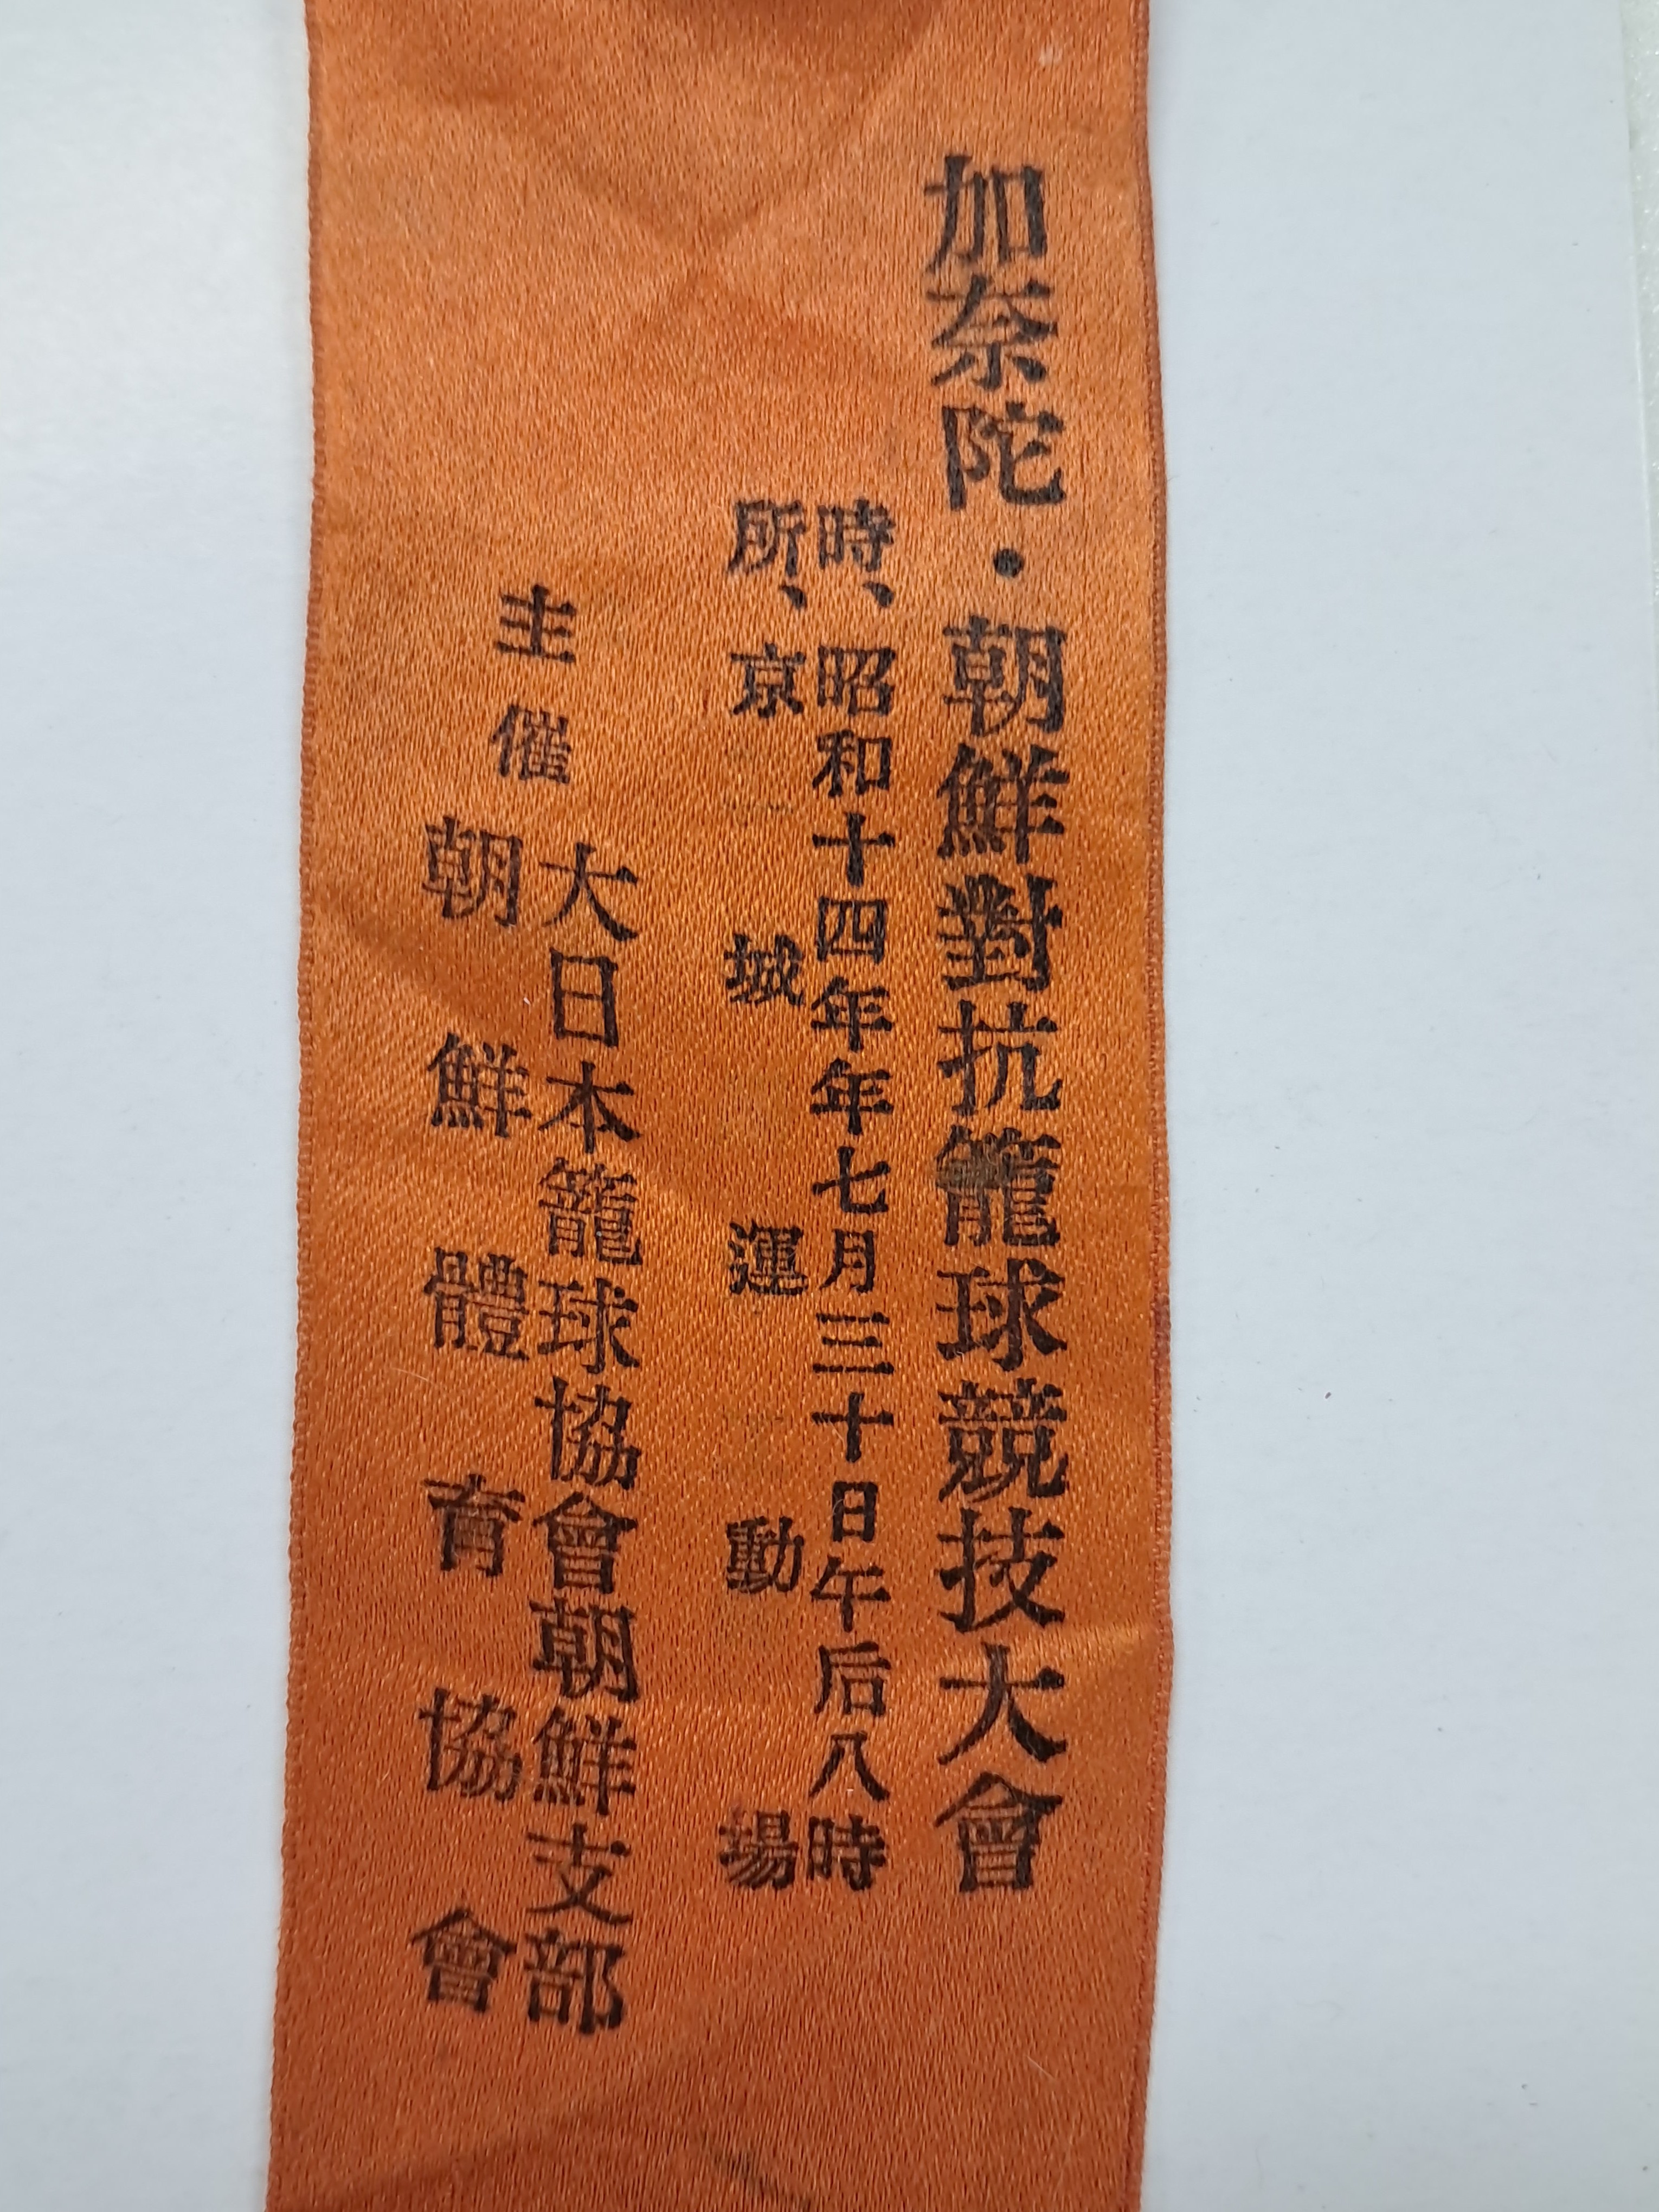 加奈陀・朝鮮對抗籠球競技大會
時、昭和十四年年七月三十日午后八時
所、京城運動場
主催
大日本籠球協會朝鮮支部
朝鮮體育協會